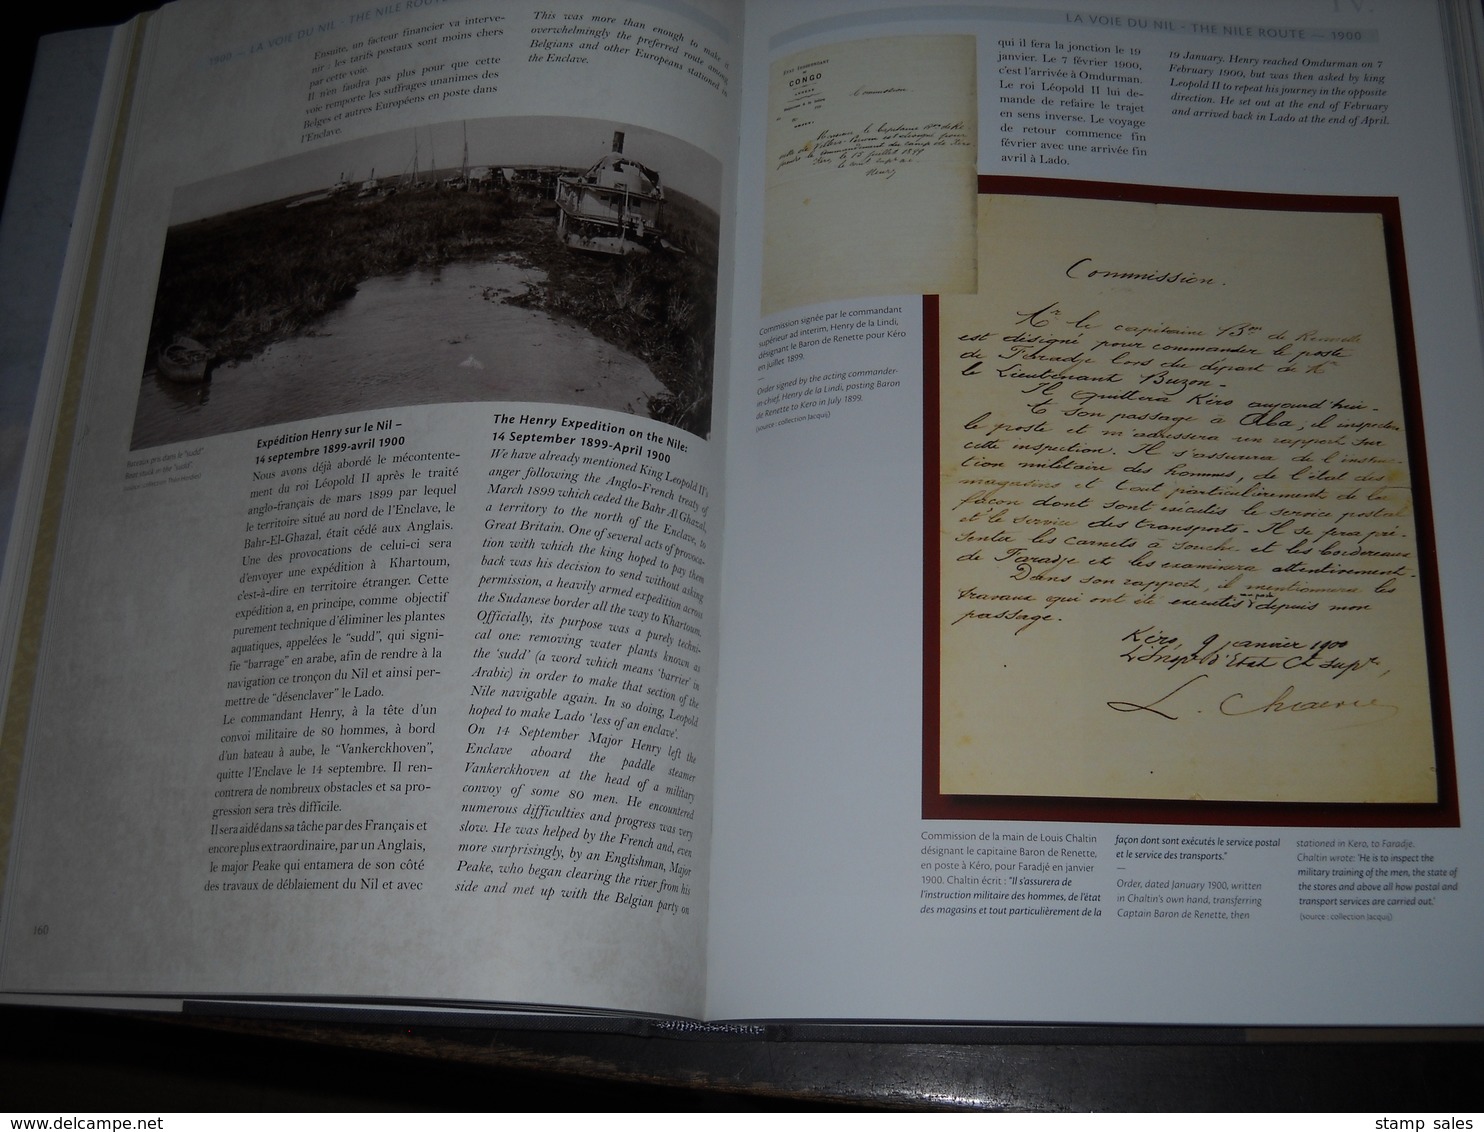 1900 — LA VOIE DU NIL - THE NILE ROUTE
Ensuite, un facteur financier va interve-
nir : les tarifs postaux sont moins chers
par cette voie.
Il n'en faudra pas plus pour que cette
voie remporte les suffrages unanimes des
Belges et autres Européens en poste dans
l'Enclave.
This was more than enough to make it
overwhelmingly the preferred route among
Belgians and other Europeans stationed in
the Enclave.
Bateaux pris dans le "sudd".
Boats stuck in the "sudd".
Expédition Henry sur le Nil –
14 septembre 1899-avril 1900
Nous avons déjà abordé le mécontente-
ment du roi Léopold II après le traité
anglo-français de mars 1899 par lequel
le territoire situé au nord de l'Enclave, le
Bahr-El-Ghazal, était cédé aux Anglais.
Une des provocations de celui-ci sera
d'envoyer une expédition à Khartoum,
c'est-à-dire en territoire étranger. Cette
expédition a, en principe, comme objectif
purement technique d'éliminer les plantes
aquatiques, appelées le "sudd", qui signi-
fie "barrage" en arabe, afin de rendre à la
navigation ce tronçon du Nil et ainsi per-
mettre de "désenclaver" le Lado.
Le commandant Henry, à la tête d'un
convoi militaire de 80 hommes, à bord
d'un bateau à aube, le "Vankerckhoven",
quitte l'Enclave le 14 septembre. Il ren-
contrera de nombreux obstacles et sa pro-
gression sera très difficile.
Il sera aidé dans sa tâche par des Français et
encore plus extraordinaire, par un Anglais,
le major Peake qui entamera de son côté
des travaux de déblaiement du Nil et avec
The Henry Expedition on the Nile:
14 September 1899-April 1900
We have already mentioned King Leopold II's
anger following the Anglo-French treaty of
March 1899 which ceded the Bahr Al Ghazal,
a territory to the north of the Enclave, to
Great Britain. One of several acts of provoca-
tion with which the king hoped to pay them
back was his decision to send without asking
permission, a heavily armed expedition across
the Sudanese border all the way to Khartoum.
Officially, its purpose was a purely techni-
cal one: removing water plants known as
the 'sudd' (a word which means 'barrier' in
Arabic) in order to make that section of the
Nile navigable again. In so doing, Leopold
hoped to make Lado 'less of an enclave'.
On 14 September Major Henry left the
Enclave aboard the paddle steamer
Vankerckhoven at the head of a military
convoy of some 80 men. He encountered
numerous difficulties and progress was very
slow. He was helped by the French and, even
more surprisingly, by an Englishman, Major
Peake, who began clearing the river from his
side and met up with the Belgian party on
160
LA VOIE DU NIL - THE NILE ROUTE — 1900
qui il fera la jonction le 19
janvier. Le 7 février 1900,
c'est l'arrivée à Omdurman.
Le roi Léopold II lui de-
mande de refaire le trajet
en sens inverse. Le voyage
de retour commence fin
février avec une arrivée fin
avril à Lado.
19 January. Henry reached Omdurman on 7
February 1900, but was then asked by king
Leopold II to repeat his journey in the opposite
direction. He set out at the end of February
and arrived back in Lado at the end of April.
ÉTAT INDÉPENDANT
DU
CONGO
Commission
Monsieur le Capitaine Bon de Re-
Kero, le 15 juillet 1899
Henry
Commission signée par le commandant
supérieur ad interim, Henry de la Lindi,
désignant le Baron de Renette pour Kéro
en juillet 1899.
—
Order signed by the acting commander-
in-chief, Henry de la Lindi, posting Baron
de Renette to Kero in July 1899.
(source : collection Jacquij)
Commission.
Mr le capitaine Bon de Rennette
est désigné pour commander le poste
de Faradje lors du départ de Mr
le Lieutenant Buzon.
Il quittera Kéro aujourd'hui.
A son passage à Aba, il inspectera
le poste et m'adressera un rapport sur
cette inspection. Il s'assurera de l'instruc-
tion militaire des hommes, de l'état des
magasins et tout particulièrement de la
façon dont sont exécutés le service postal
et le service des transports. Il se fera pré-
senter les carnets à souche et les bordereaux
de Faradje et les examinera attentivement.
Dans son rapport, il mentionnera les
travaux qui ont été exécutés depuis mon
passage.
Kéro, 9 janvier 1900
L'Insp. d'Etat Ct supr,
L. Chaltin
Commission de la main de Louis Chaltin
désignant le capitaine Baron de Renette,
en poste à Kéro, pour Faradjé en janvier
1900. Chaltin écrit : "Il s'assurera de
l'instruction militaire des hommes, de l'état
des magasins et tout particulièrement de la
façon dont sont exécutés le service postal
et le service des transports."
—
Order, dated January 1900, written
in Chaltin's own hand, transferring
Captain Baron de Renette, then
stationed in Kero, to Faradje.
Chaltin wrote: 'He is to inspect the
military training of the men, the state of
the stores and above all how postal and
transport services are carried out.'
(source : collection Jacquij)
stamp sales